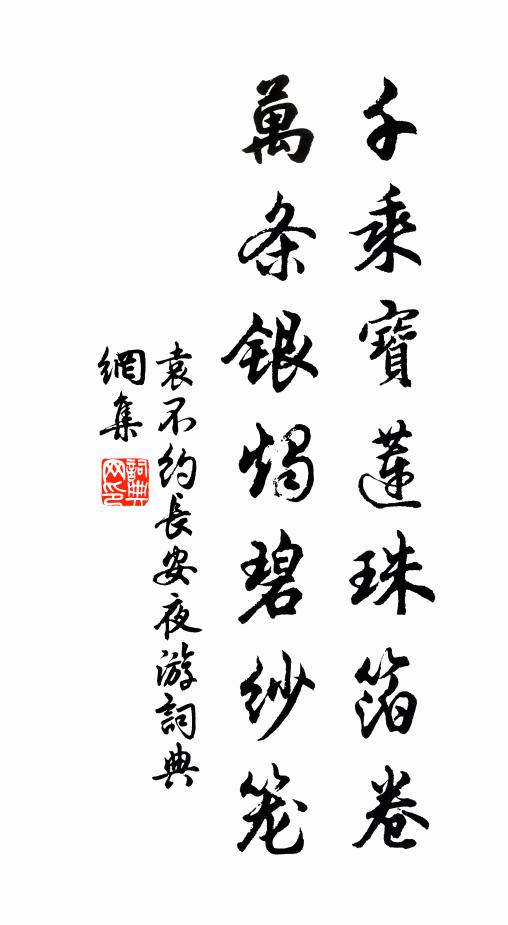 千乘寶蓮珠箔卷
萬条銀燭碧紗笼
袁不約長安夜游詞典
網集
詞典
网印